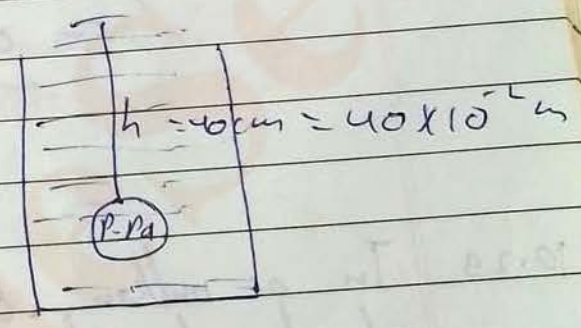 h = 40 cm = 40 X 10⁻² m
P-Pa